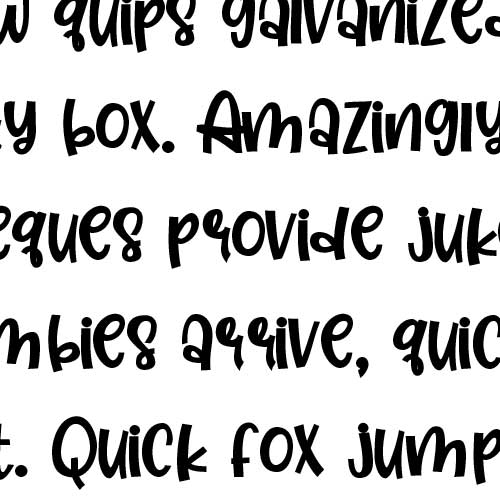 w quips galvanized
ky box. Amazingly
eques provide juke
mbies arrive, quic
t. Quick fox jump